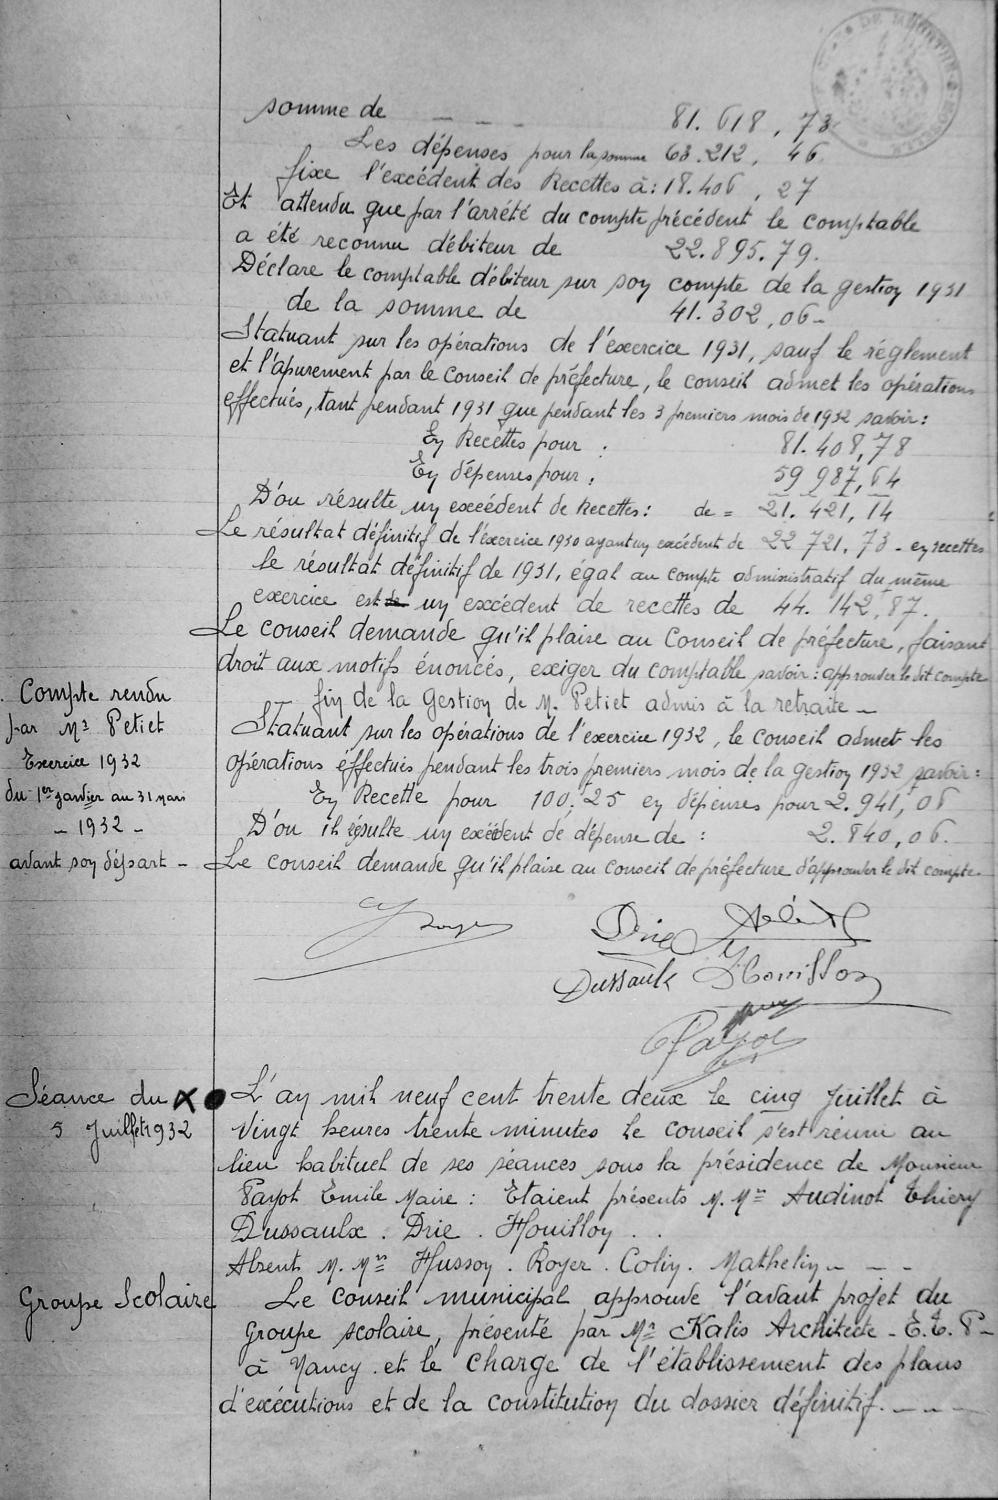 somme de _ _ _ 81.618, 73
Les dépenses pour la somme 63.212, 46
fixe l'excédent des Recettes à : 18.406, 27
Et attendu que par l'arrêté du compte précédent le comptable
a été reconnu débiteur de 22.895.79.
Déclare le comptable débiteur sur son compte de la gestion 1931
de la somme de 41.302,06-
Statuant sur les opérations de l'exercice 1931, sauf le règlement
et l'apurement par le Conseil de préfecture, le conseil admet les opérations
effectués, tant pendant 1931 que pendant les 3 premiers mois de 1932 savoir :
En Recettes pour : 81.408,78
En dépenses pour : 59 987,64
D'ou résulte un excédent de Recettes : de = 21.421,14
Le résultat définitif de l'éxercice 1930 ayant un excédent de 22 721.73 - en recettes
le résultat définitif de 1931, égal au compte administratif du même
exercice est de un excédent de recettes de 44.142,87.
Le conseil demande qu'il plaise au Conseil de préfecture, faisant
droit aux motifs énoncés, exiger du comptable savoir : approuver le dit compte
Compte rendu
par Mr Petiet
Exercice 1932
du 1er janvier au 31 mars
- 1932 -
avant son départ -
fin de la Gestion de M. Petiet admis à la retraite -
Statuant sur les opérations de l'exercice 1932, le conseil admet les
opérations éffectués pendant les trois premiers mois de la gestion 1932 savoir :
En Recette pour 100,25 en dépenses pour 2.941,06
D'ou il résulte un excédent de dépense de : 2.840,06.
Le conseil demande qu'il plaise au conseil de préfecture d'approuver le dit compte-
Royer
Drie
Dussaulx Houillon
Payot
Séance du
5 Juillet 1932
L'an mil neuf cent trente deux le cinq Juillet à
Vingt heures trente minutes le conseil s'est réuni au
lieu habituel de ses séances sous la présidence de Monsieur
Payot Emile Maire : Etaient présents M.Mrs Audinot Thiery
Dussaulx . Drie . Houillon . .
Absents M.Mrs Husson . Royer . Colin . Mathelin - - -
Groupe Scolaire
Le Conseil municipal approuve l'avant projet du
Groupe scolaire, présenté par Mr Kalis Architecte - E.T.P-
à Nancy . et le charge de l'établissement des plans
d'exécutions et de la constitution du dossier définitif. - - -